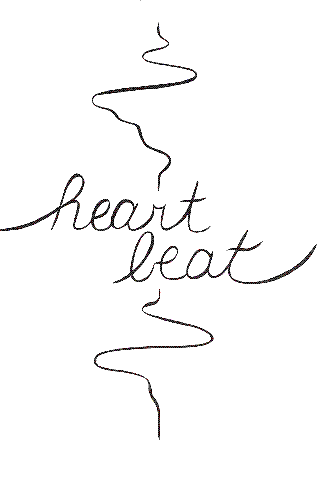 heart
beat